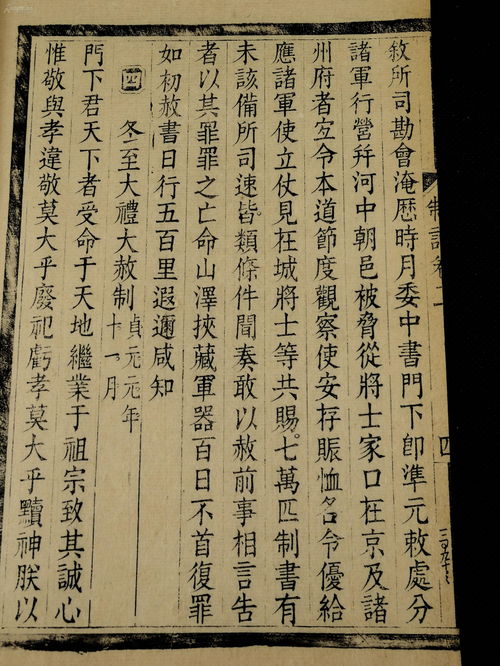 敘所司勘會淹歷時月委中書門下卽準元敕處分
諸軍行營幷河中朝邑被脅從將士家口在京及諸
州府者宜令本道節度觀察使安存賑恤名令優給
應諸軍使立仗見在城將士等共賜七萬匹制書有
未該備所司速皆類條件聞奏敢以赦前事相言告
者以其罪罪之亡命山澤挾藏軍器百日不首復罪
如初赦書日行五百里遐邇咸知
四
冬至大禮大赦制 貞元元年十一月
門下君天下者受命于天地繼業于祖宗致其誠心
惟敬與孝違敬莫大乎廢祀虧孝莫大乎黷神朕以
制誥卷二
四